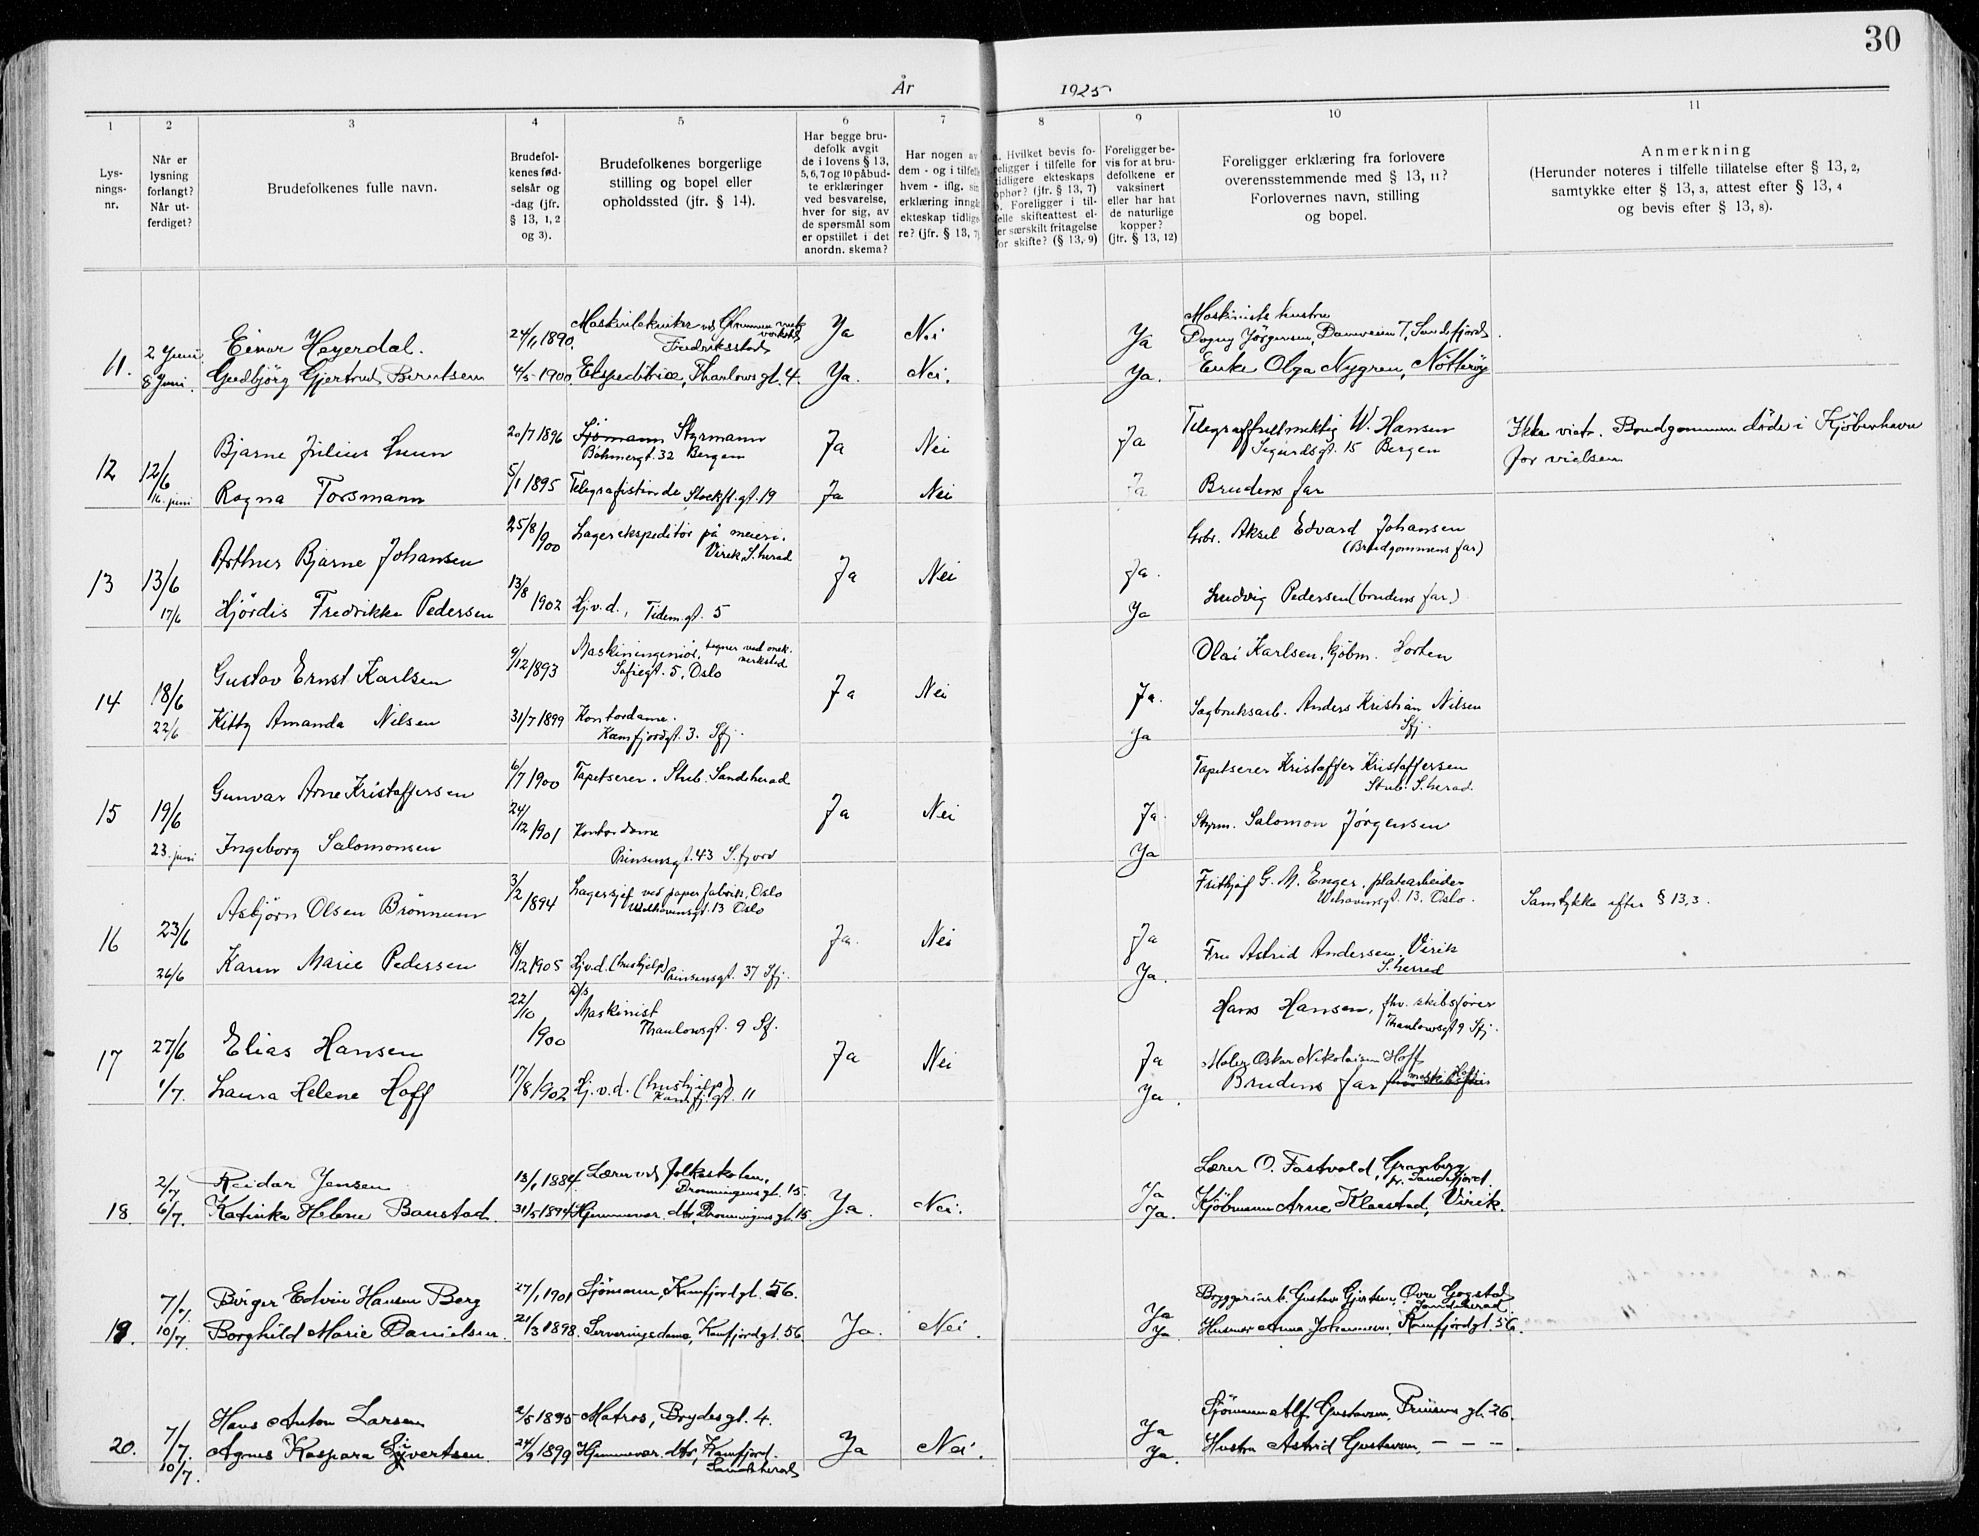 30
År 1925
1 2 3 4 5 6 7 8 9 10 11
Lys-
nings-
nr.
Når er
lysning
forlangt?
Når ut-
ferdiget?
Brudefolkenes fulle navn.
Brudefol-
kenes fød-
selsår og
-dag (jfr.
§ 13, 1, 2
og 3).
Brudefolkenes borgerlige
stilling og bopel eller
opholdssted (jfr. § 14).
Har begge bru-
defolk avgit
de i lovens § 13,
5, 6, 7 og 10 påbud-
te erklæringer
ved besvarelse,
hver for sig, av
de spørsmål som
er opstillet i det
anordn. skema?
Har nogen av
dem - og i tilfelle
hvem - iflg. sin
erklæring inngå
ekteskap tidlige
re? (jfr. § 13, 7)
a. Hvilket bevis fo-
religger i tilfelle for
tidligere ekteskaps
ophør? (jfr. § 13, 7)
b. Foreligger i til-
felle skifteattest el-
ler særskilt fritagelse
for skifte? (§ 13, 9)
Foreligger be-
vis for at bru-
defolkene er
vaksinert
eller har hat
de naturlige
kopper?
(jfr. § 13, 12)
Foreligger erklæring fra forlovere
overensstemmende med § 13, 11?
Forlovernes navn, stilling
og bopel.
Anmerkning
(Herunder noteres i tilfelle tillatelse efter § 13, 2,
samtykke efter § 13, 3, attest efter § 13, 4
og bevis efter § 13, 8).
11. 2 Juni Einar Heyerdal. 24/1 1890. Maskintekniker ved
Fredriksstad Ja Nei Ja Maskinists hustru
Dagny Jörgensen, Damveien 7, Sandefjord
8 Juni Gudbjörg Gjertrud Berntsen 4/5 1900 Ekspeditrice, Thaulows gt. 4. Ja. Nei. Ja. Enke Olga Nygren, Nötteröy
12 12/6 Bjarne Julius Lunn 20/7 1896 Sjömann Styrmann
Böhmergt. 32 Bergen Ja Nei Ja Telegraffullmektig W. Hansen
Sigurdsgt. 15 Bergen Ikke viet. Brudgommen döde i Kjöbenhavn
for vielsen
16. juni Ragna Torsmann 5/1 1895 Telegrafistinde Stockfl. gt. 19 Ja Nei Ja Brudens far
13 13/6 Arthur Bjarne Johansen 25/8 1900 Lagerekspeditör på meieri.
Virik S. herad Ja Nei Ja. Grbr. Aksel Edvard Johansen
(Brudgommens far)
17/6 Hjördis Fredrikke Pedersen 13/8 1902 Hj.v.d., Tidem.gt. 5 Ja Ludvig Pedersen (brudens far)
14 18/6 Gustav Ernst Karlsen 9/12 1893 Maskiningeniör, tegner ved mek.
verksted
Sofiegt. 5, Oslo Ja Nei Ja. Olai Karlsen, kjöbm. Horten
22/6 Kitty Amanda Nilsen 31/7 1899 Kontordame.
Kamfjordgt. 3. Sfj. Ja Sagbruksarb. Anders Kristian Nilsen
Sfj.
15 19/6 Gunvar Arne Kristoffersen 6/7 1900 Tapetserer. Stub. Sandeherad Ja Nei Ja Tapetserer Kristoffer Kristoffersen
Stub. S. herad.
23. juni Ingeborg Salomonsen 24/12 1901 Kontordame
Prinsensgt. 43 S. fjord Ja Styrm. Salomon Jörgensen
16 23/6 Asbjörn Olsen Brönnum 3/2 1894 Lagersjef ved papirfabrik, Oslo
Welhavensgt. 13 Oslo Ja. Nei Ja Frithjof G. M. Enger, platearbeider
Welhavensgt. 13. Oslo. Samtykke efter § 13,3.
26/6 Karen Marie Pedersen 18/12 1905 Hj.v.d. (hushjelp) Prinsensgt. 37 Sfj. Ja. Fru Astrid Andersen, Virik
S. herred
17 27/6 Elias Hansen 22/10 1900 D/s
Maskinist
Thaulowsgt. 9 Sf. Ja Nei Ja Hans Hansen, fhv. skibsförer
Thaulowsgt 9 Sfj.
1/7. Laura Helene Hoff 17/8 1902 Hj.v.d. (hushjelp)
Kamfj.gt. 11 Ja. Maler Oskar Nikolaisen Hoff
Brudens far
18. 2/7 Reidar Jensen 13/1 1884 Lærer ved folkeskolen,
Dronningens gt. 15. Ja. Nei. Ja Lærer O. Fastvold, Granberg
pr. Sandefjord.
6/7. Katinka Helene Baustad 31/5 1894 Hjemmevær. dtr., Dronningens gt. 15. Ja. Kjöbmann Arne Klaastad, Virik.
19. 7/7. Birger Edvin Hansen Berg 27/1 1901 Sjömann, Kamfjordgt. 56. Ja. Nei. Ja Bryggeriarb. Gustav Gjertsen, Øvre Gogstad
Sandeherad.
10/7. Borghild Marie Danielsen. 21/3 1898. Serveringsdame, Kamfjordgt. 56 Ja. Husmor Anna Johannesen, Kamfjordgt. 56.
20. 7/7. Hans Anton Larsen 2/5 1895 Matros, Brydes gt. 4. Ja Nei. Ja Sjömann Alf Gustavsen, Prinsens gt. 26.
10/7. Agnes Kaspara Sivertsen 24/9 1899 Hjemmevær. dtr., Kamfjord
Sandeherad Ja. Hustru Astrid Gustavsen, — — — .